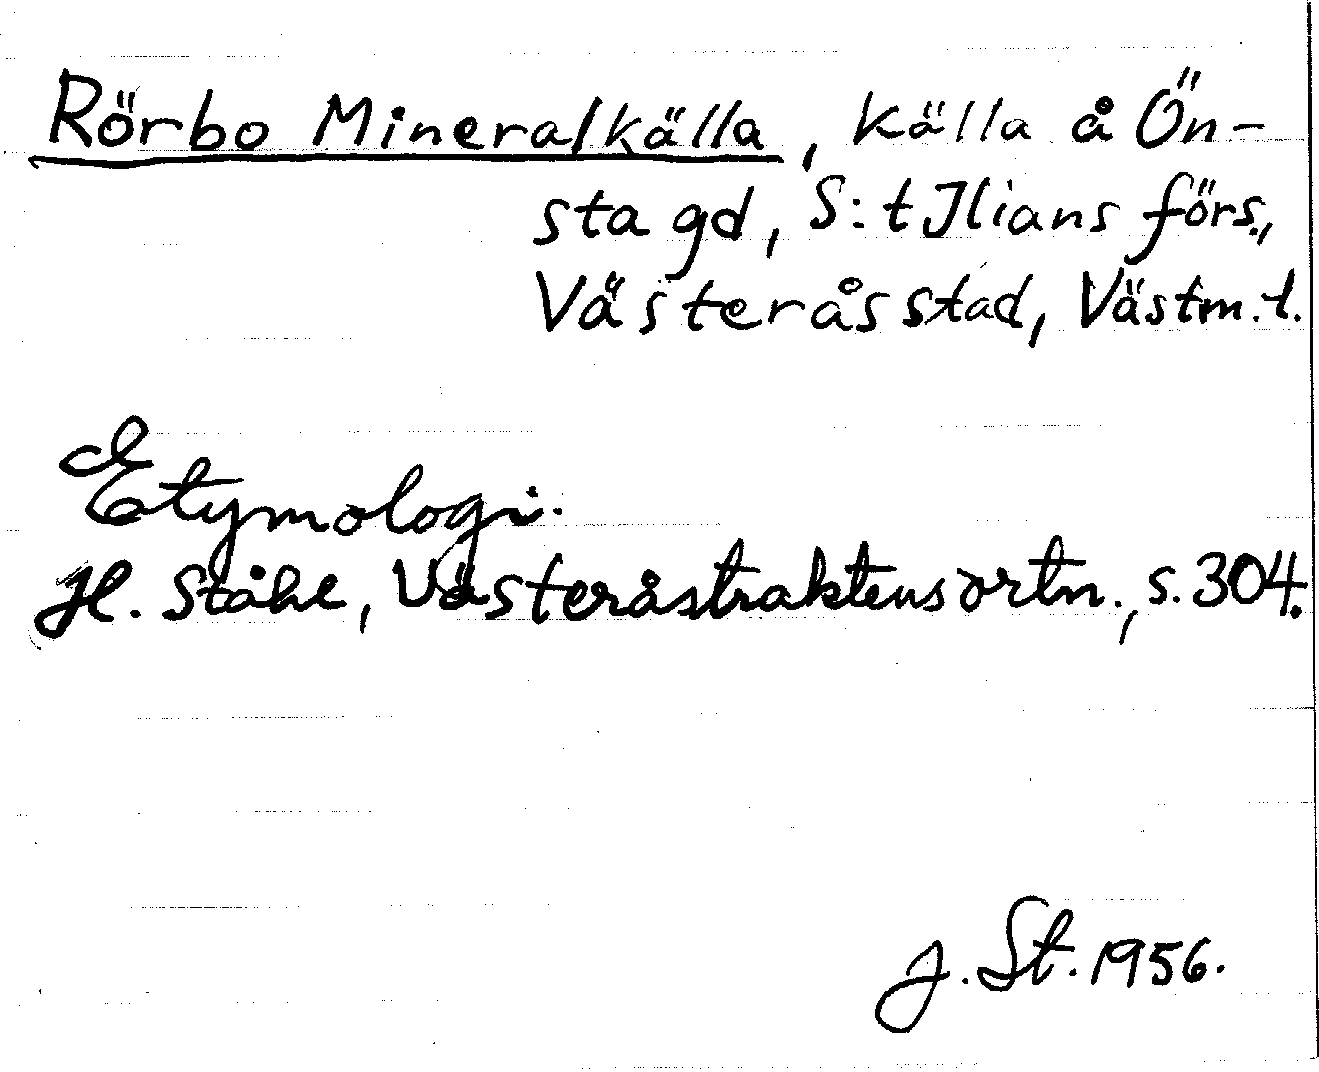 Rörbo Mineralkälla, källa å Ön-
sta gd, S:t Ilians förs.,
Västerås stad, Västm. l.
Etymologi.
H. Ståhl, Västeråstraktens ortn., s. 304.
J. St. 1956.